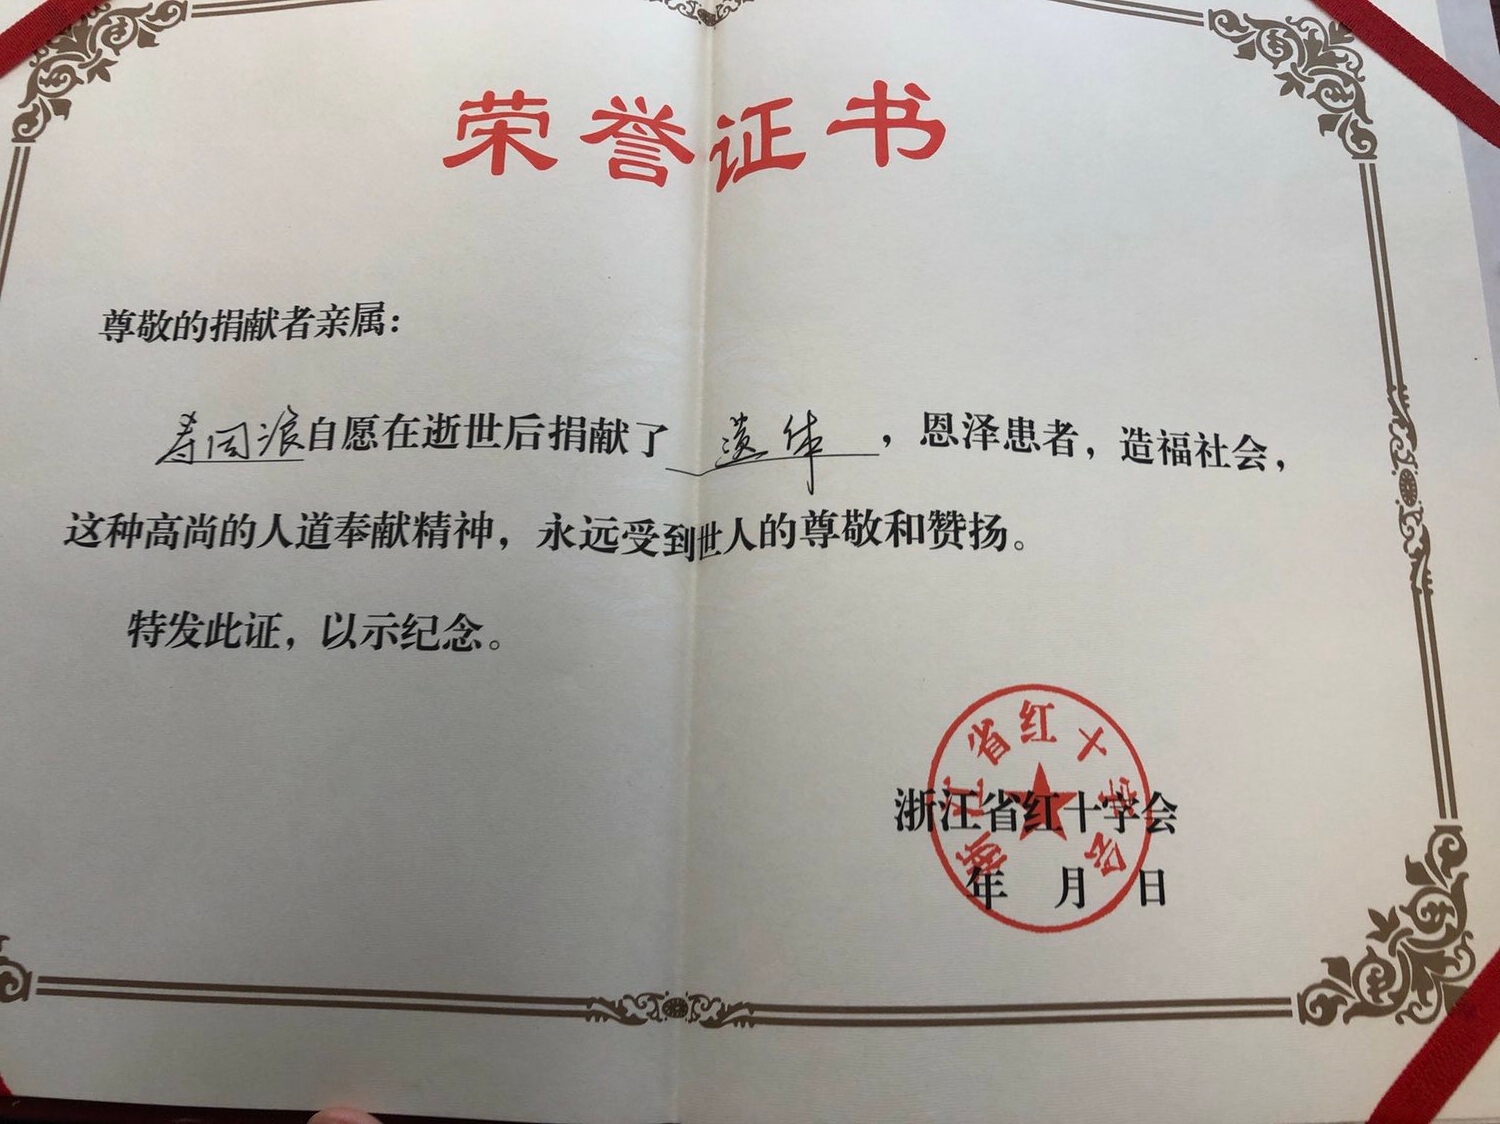 荣誉证书
尊敬的捐献者亲属：
寿国浪自愿在逝世后捐献了 遗体 ，恩泽患者，造福社会，
这种高尚的人道奉献精神，永远受到世人的尊敬和赞扬。
特发此证，以示纪念。
浙江省红十字会
浙江省红十字会
年 月 日